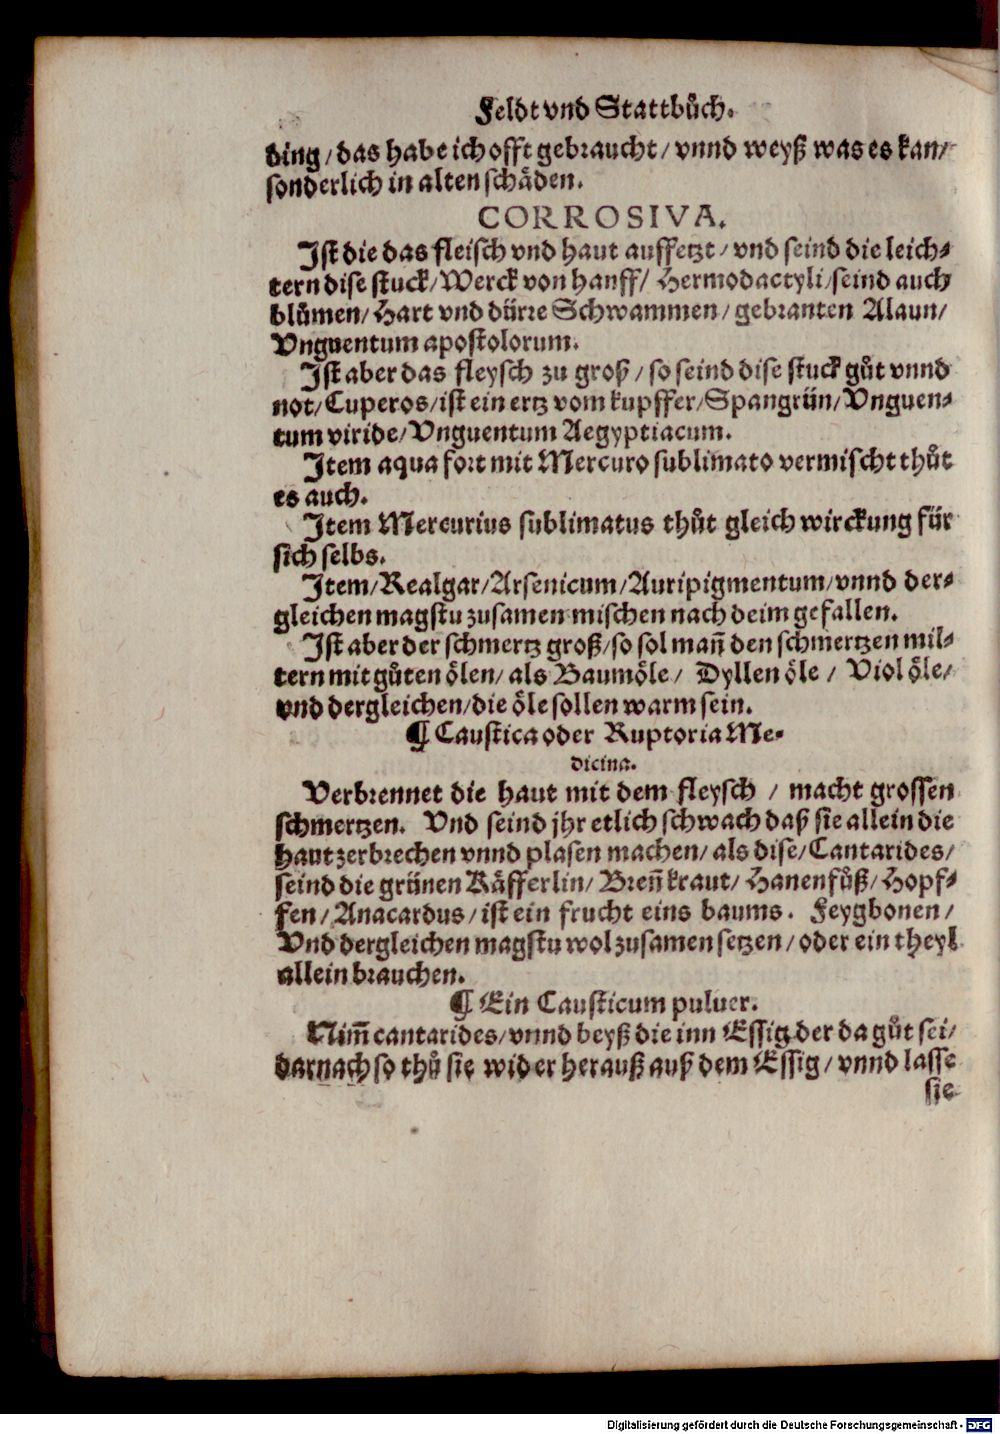 Feldt vnd Stattbuͦch.
ding / das habe ich offt gebraucht / vnnd weyß was es kan /
sonderlich in alten schaͤden.
CORROSIVA.
Ist die das fleisch vnd haut auffetzt / vnd seind die leich⸗
tern dise stuck / Werck von hanff / Hermodactyli / seind auch
bluͦmen / Hart vnd duͤrre Schwammen / gebranten Alaun /
Vnguentum apostolorum.
Ist aber das fleysch zu groß / so seind dise stuck guͦt vnnd
not / Cuperos / ist ein ertz vom kupffer / Spangruͤn / Vnguen⸗
tum viride / Vnguentum Aegyptiacum.
Item aqua fort mit Mercuro sublimato vermischt thuͦt
es auch.
Item Mercurius sublimatus thuͦt gleich wirckung fuͤr
sich selbs.
Item / Realgar / Arsenicum / Auripigmentum / vnnd der⸗
gleichen magstu zusamen mischen nach deim gefallen.
Ist aber der schmertz groß / so sol mañ den schmertzen mil⸗
tern mit guͦten oͤlen / als Baumoͤle / Dyllen oͤle / Viol oͤle /
vnd dergleichen / die oͤle sollen warm sein.
¶ Caustica oder Ruptoria Me⸗
dicina.
Verbrennet die haut mit dem fleysch / macht grossen
schmertzen. Vnd seind jhr etlich schwach daß sie allein die
haut zerbrechen vnnd plasen machen / als dise / Cantarides /
seind die gruͤnen Kaͤfferlin / Breñ kraut / Hanenfuͦß / Hopf⸗
fen / Anacardus / ist ein frucht eins baums. Feygbonen /
Vnd dergleichen magstu wol zusamen setzen / oder ein theyl
allein brauchen.
¶ Ein Causticum puluer.
Nim̃ cantarides / vnnd beyß die inn Essig der da guͦt sei /
darnach so thuͦ sie wider herauß auß dem Essig / vnnd lasse
sie
Digitalisierung gefördert durch die Deutsche Forschungsgemeinschaft - DFG